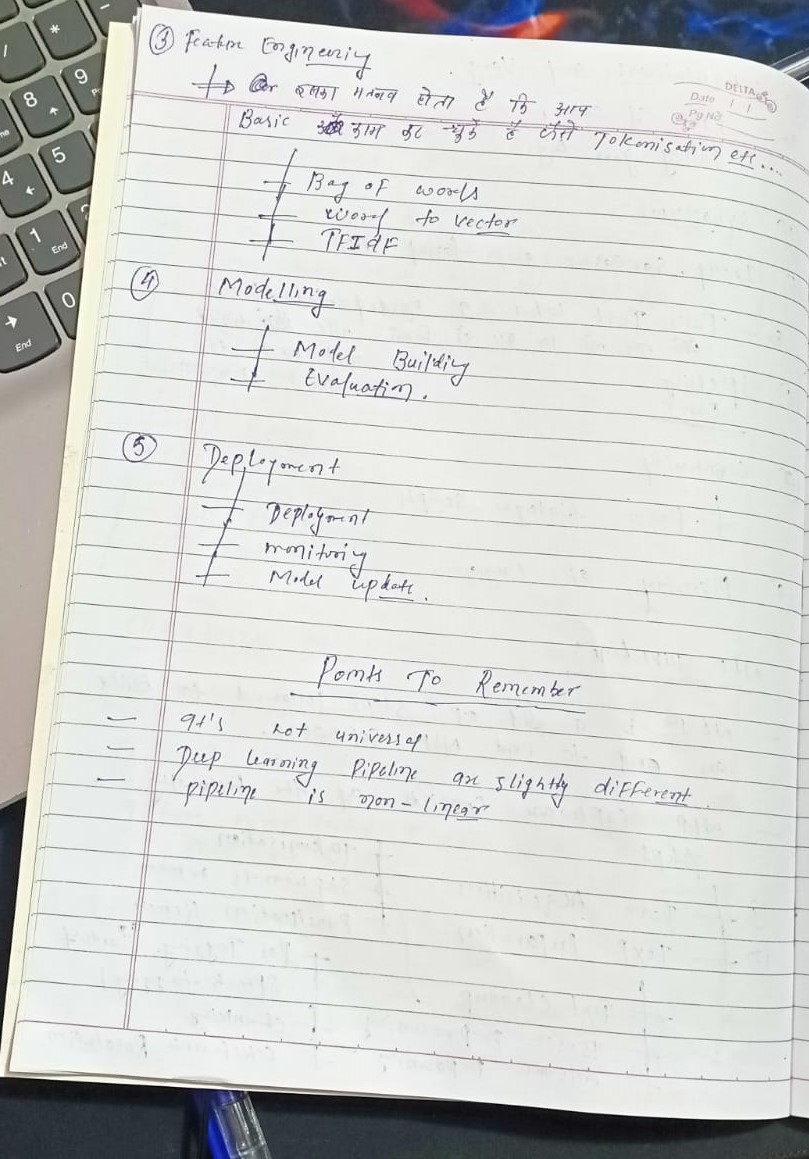 ③ Feature Engineering
→ इसका मतलब होता है कि आप
DELTA
Date / /
Pg No
Basic काम कर चुके हैं जैसे Tokenisation etc....
Bag of words
Word to vector
TFIdF
④ Modelling
Model Building
Evaluation.
⑤ Deployment
Deployment
monitoring
Model update.
Points To Remember
— It's not universal
— Deep Learning Pipeline are slightly different.
— pipeline is non-linear
*
/
8
9
5
4
1
End
0
End